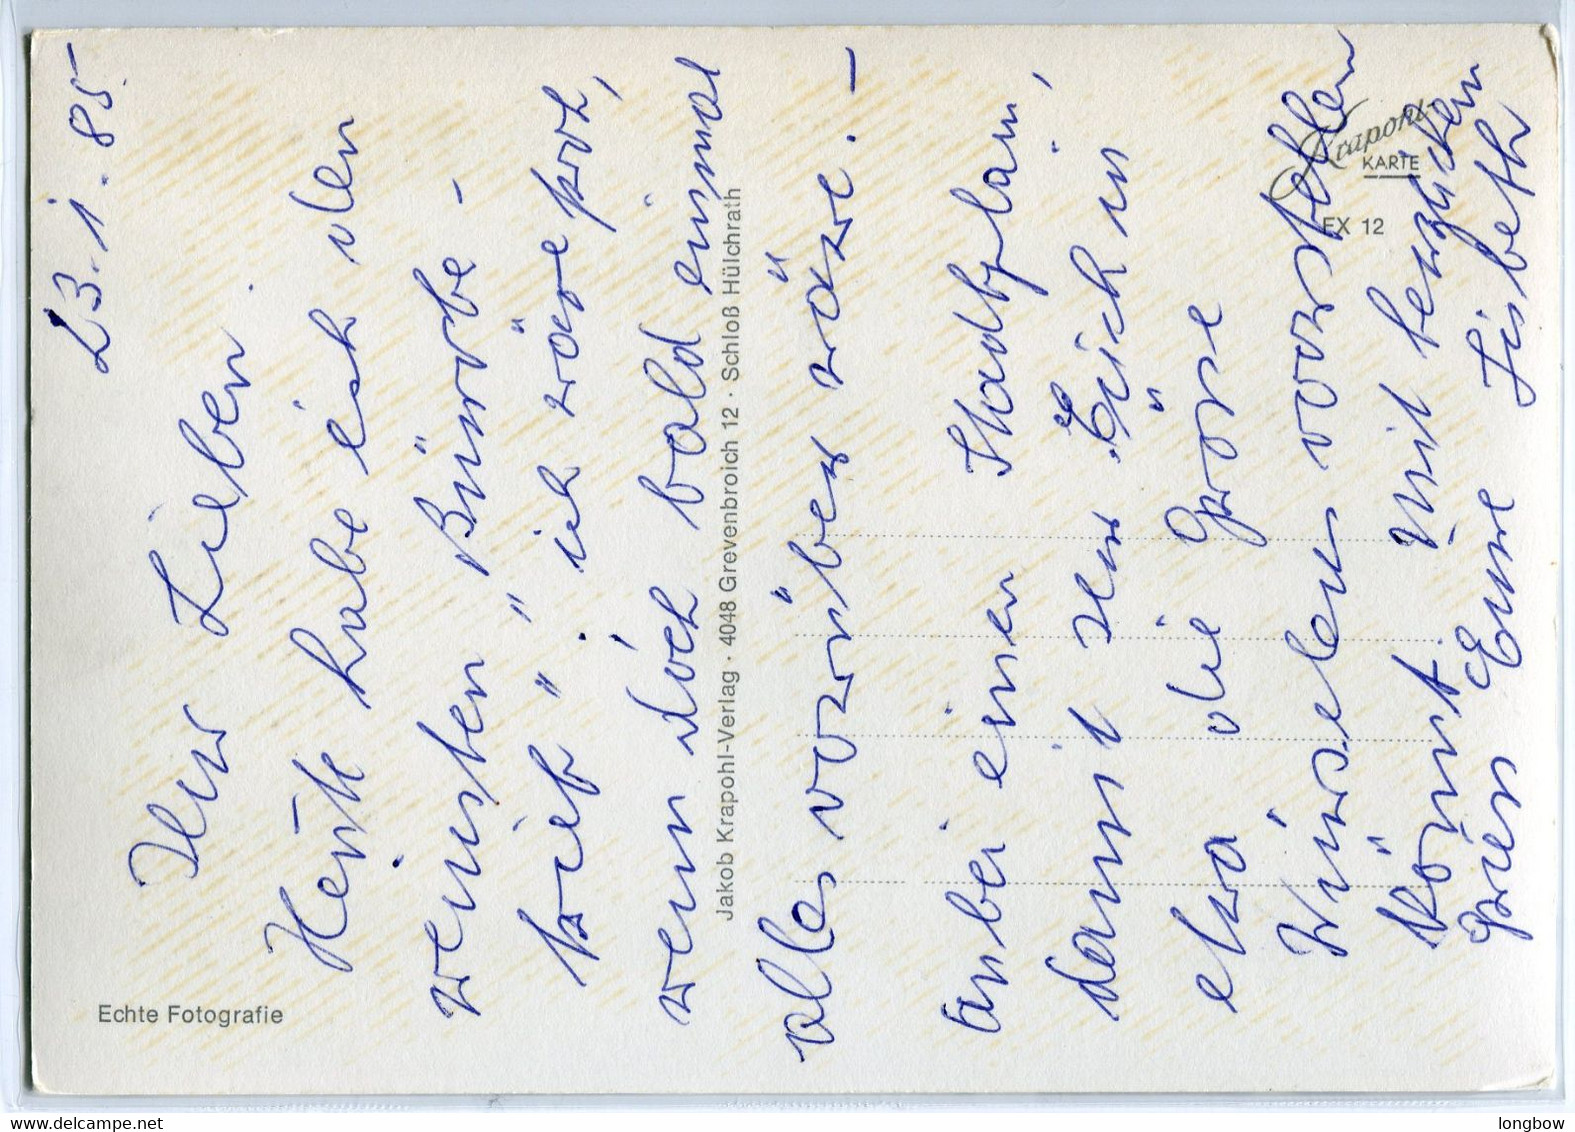 23.1.85
Ihr Lieben!
Heute habe ich den
weissen "Bürobe-
trieb", ich wäre froh,
wenn doch bald einmal
alles vorüber wäre. —
anbei einen Stadtplan,
damit Ihr Euch in
etwa die Grösse
Würselens vorstellen
könnt. Mit herzlichen
Grüssen Eure Lisbeth
Echte Fotografie
Jakob Krapohl-Verlag · 4048 Grevenbroich 12 · Schloß Hülchrath
Krapohl
KARTE
FX 12
www.delcampe.net
longbow